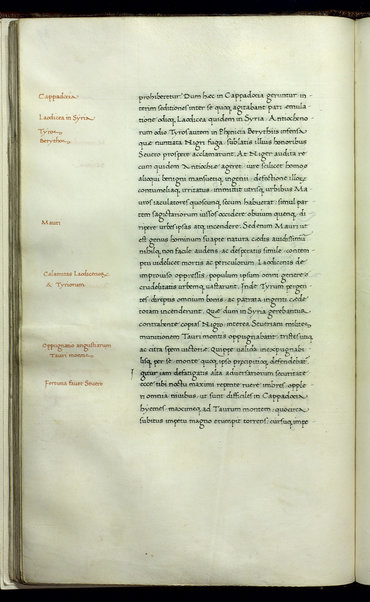 Cappadocia
Laodicea in Syria
Tyros
Berythos
Mauri
Calamitas Laodicenorum
& Tyriorum
Oppugnatio angustiarum
Tauri montis
Fortuna fauet Seuero
prohiberetur. Dum hæc in Cappadocia geruntur in
terim seditiones inter se quoq; agitabant pari æmula
tione odioq; Laodicea quidem in Syria Antiocheno
rum odio Tyros autem in Phenicia Berythiis infensa
quæ nuntiata Nigri fuga sublatis illius honoribus
Seuero prospere acclamarunt. At Niger audita re
cum quidem Antiochiæ ageret uir scilicet homo
alioqui benigni mansuetiq; ingenii defectione illorum
contumeliaq; irritatus immittit utrisq; urbibus Ma
uros iaculatores quoscunq; secum habuerat simul par
tem sagittariorum iussos occidere obuium quenq; di
ripere urbes ipsas atq; incendere. Sed enim Mauri ut
est genus hominum suapte natura cædis auidissimum
nihilq; non facile audens ac desperatis simile contem
ptu uidelicet mortis ac periculorum Laodicenis de
improuiso oppressis populum ipsum omni genere
crudelitatis urbemq; uastarunt. Inde Tyrum pergen
tes direptis omnibus bonis ac patrata ingenti cæde
totam incenderunt. Quæ dum in Syria gerebantur
contrahente copias Nigro interea Seueriani milites
munitionem Tauri montis oppugnabant tristes iniq;
ac citra spem uictoriæ. Quippe ualida inexpugnabi
lisq; per se monte quoq; ipso præcipitioq; defendebat
igitur iam defatigatis alta aduersariorum securitate
ecce tibi noctu maxime repente ruere imbres opple
ri omnia niuibus ut sunt difficiles in Cappadocia
hyemes maximeq; ad Taurum montem quocirca
subitus impetu magno erumpit torrens cursuq; impe